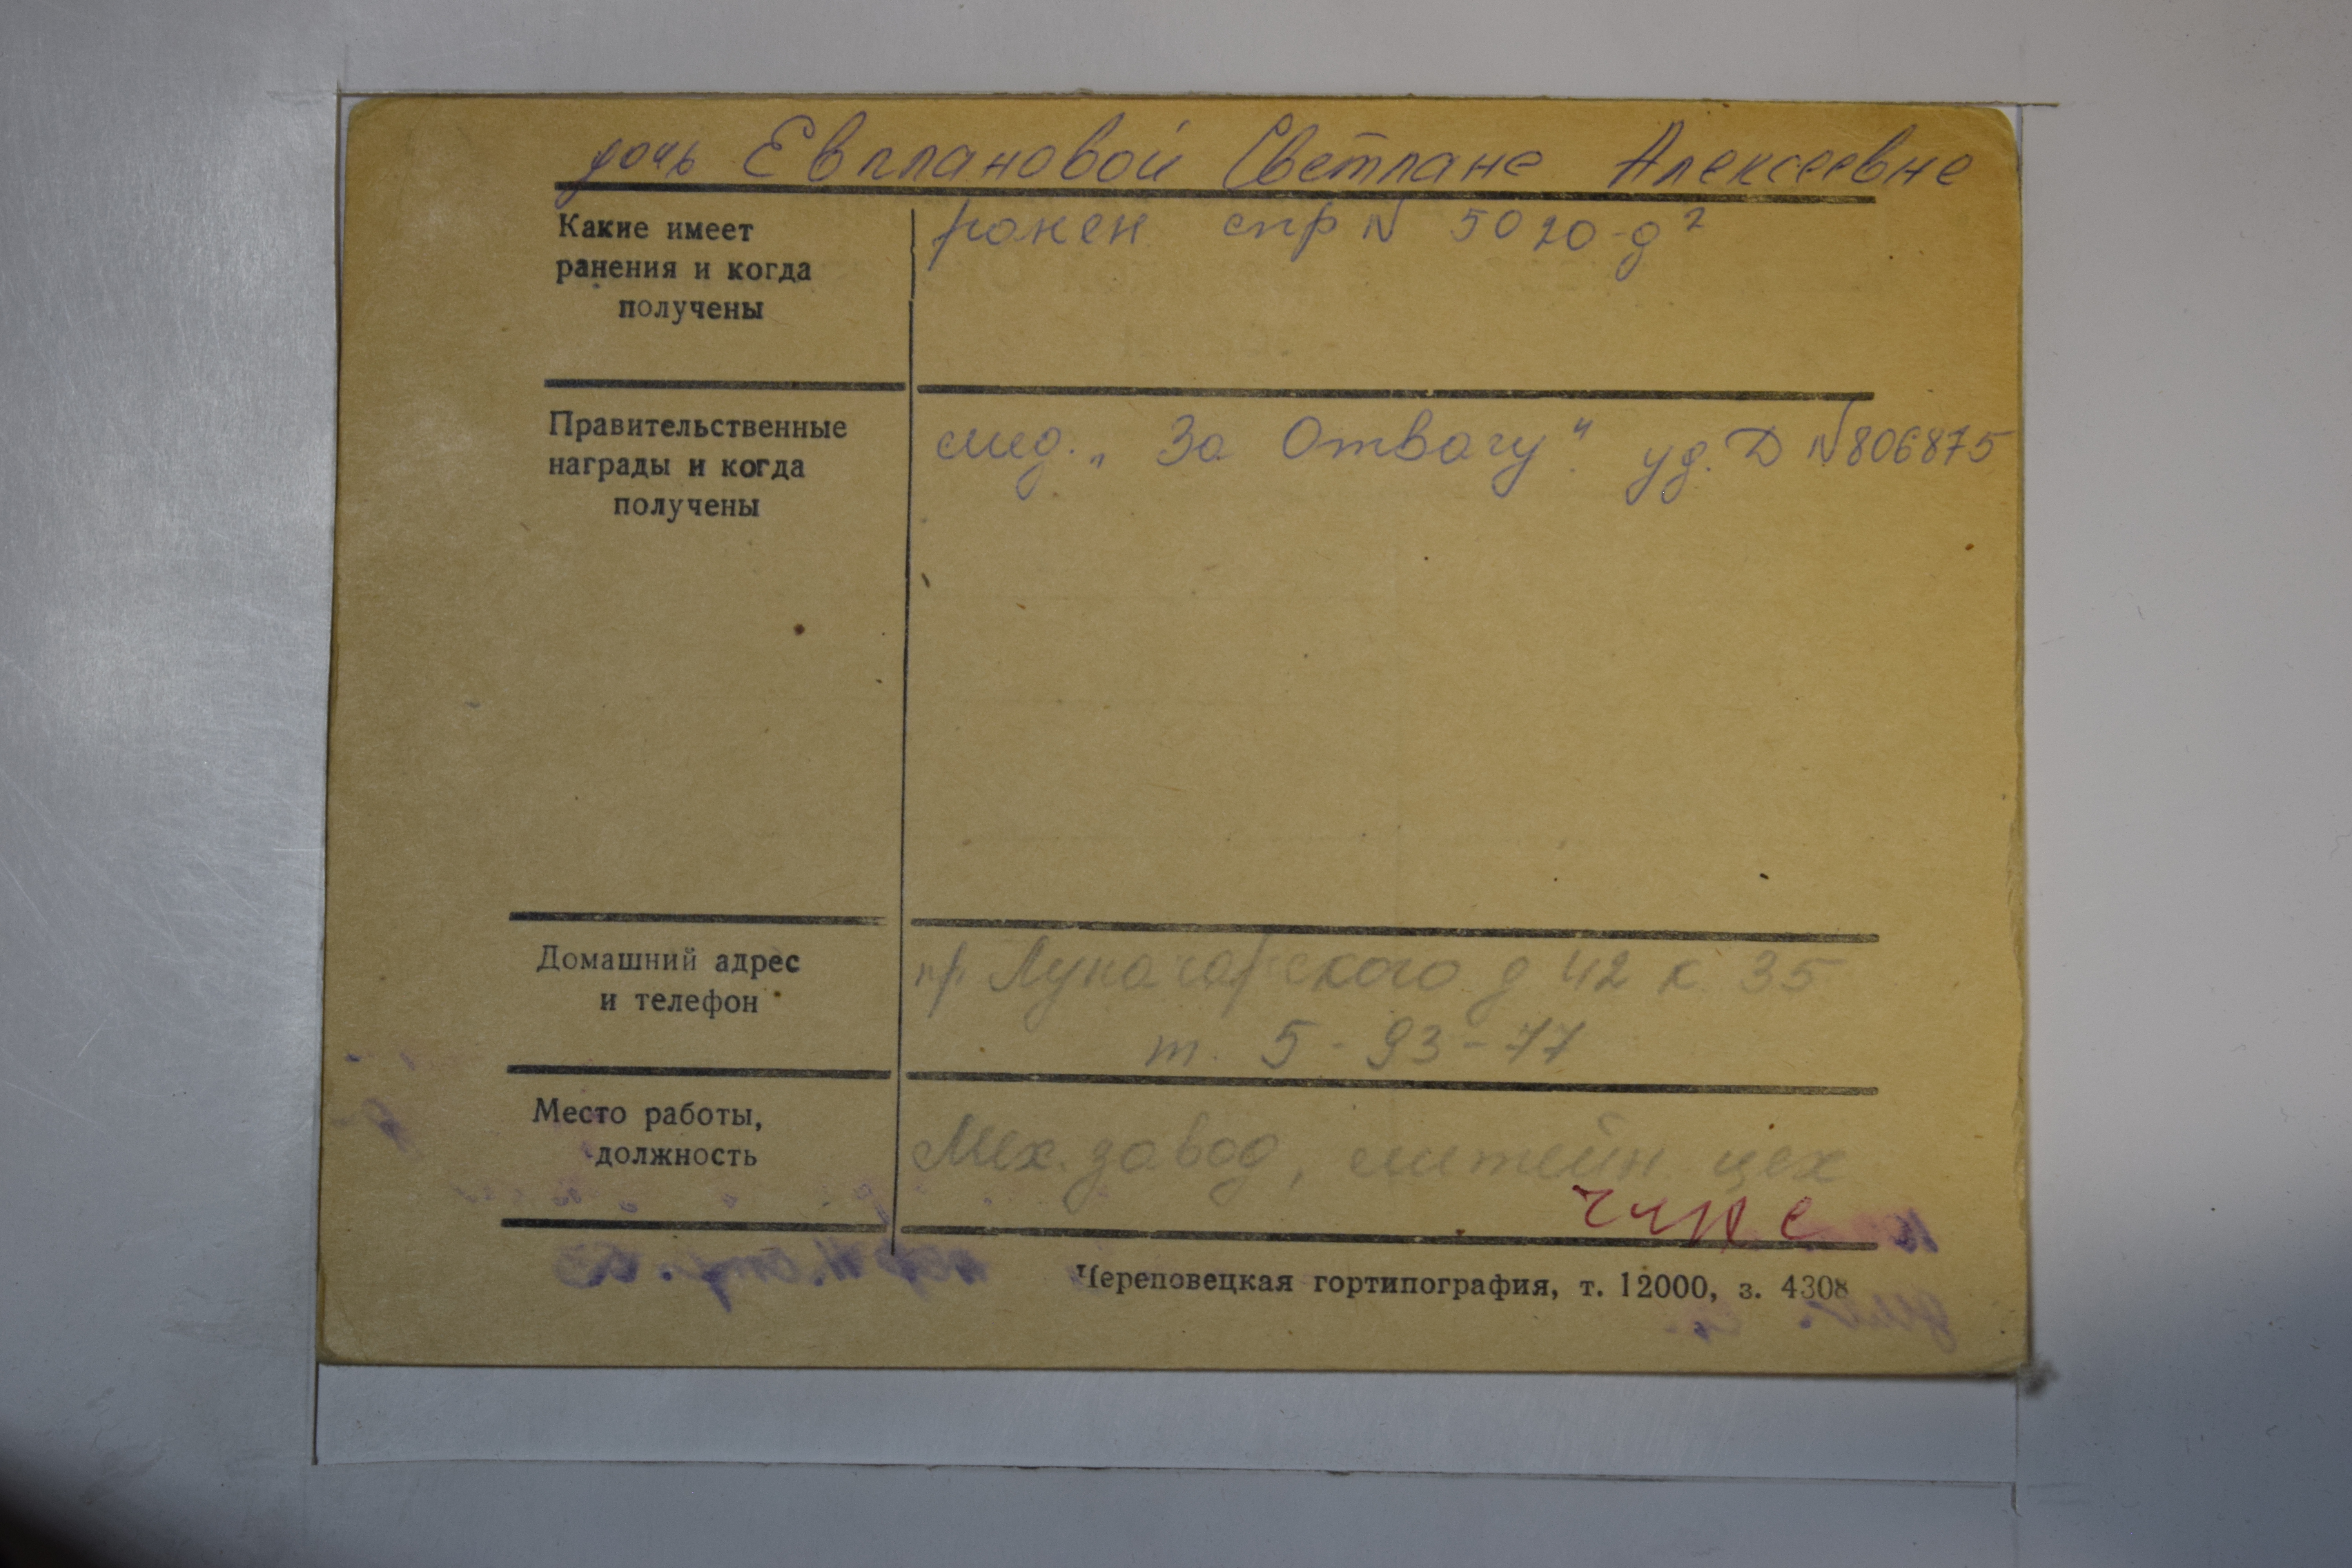 дочь Евплановой Светлане Алексеевне
Какие имеет
ранения и когда
получены
ранен спр N 5020-д²
Правительственные
награды и когда
получены
мед. „За Отвагу“. уд. Д N 806875
Домашний адрес
и телефон
пр. Луначарского д 42 к 35
т. 5-93-77
Место работы,
должность
Мех. завод, литейн. цех
Череповецкая гортипография, т. 12000, з. 4308